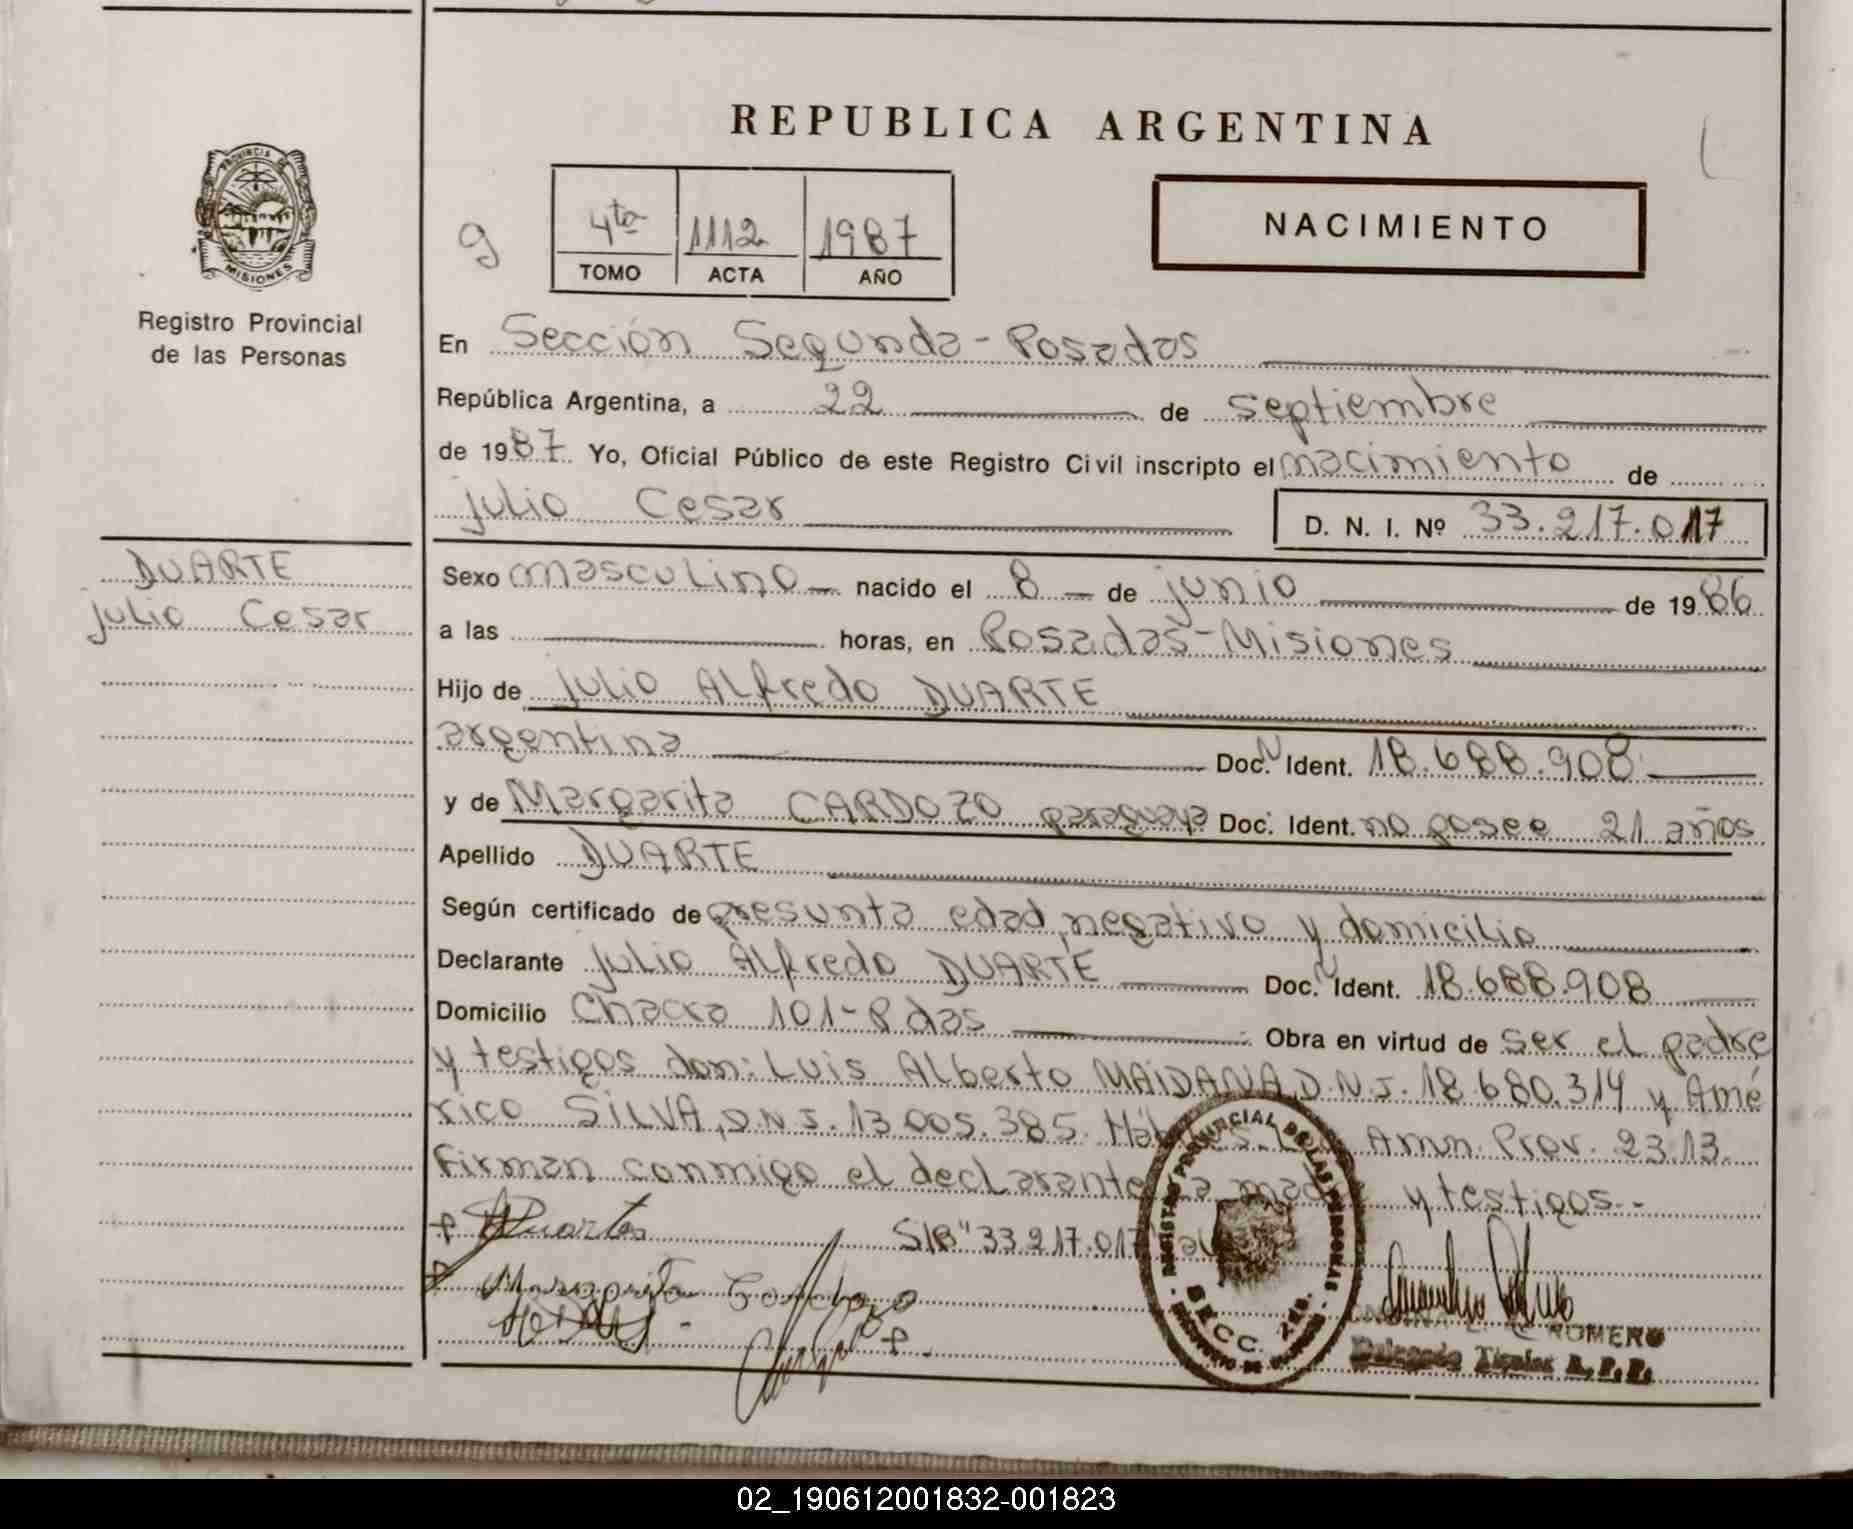 REPUBLICA ARGENTINA
PROVINCIA DE
MISIONES
Registro Provincial
de las Personas
g
4ta 1112 1987
TOMO ACTA AÑO
NACIMIENTO
En Sección Segunda - Posadas
República Argentina, a 22 de septiembre
de 1987. Yo, Oficial Público de este Registro Civil inscripto el nacimiento de
julio Cesar
D. N. I. Nº 33.217.017
DUARTE
julio Cesar
Sexo masculino nacido el 8 de junio de 1986
a las horas, en Posadas-Misiones
Hijo de julio Alfredo DUARTE
argentina Doc. N Ident. 18.688.908
y de Margarita CARDOZO paraguaya Doc. Ident. no posee 21 años
Apellido DUARTE
Según certificado de presunta edad, negativo y domicilio
Declarante julio Alfredo DUARTE Doc. N Ident. 18.688.908
Domicilio Chacra 101-Pdas Obra en virtud de ser el padre
y testigos don: Luis Alberto MAIDANA, D.N.I. 18.680.314 y Amé
rico SILVA, D.N.I. 13.005.385. Amn. Prov. 23.13.
Firman conmigo el declarante la madre y testigos.-
Duarte S/B" 33.217.017
Margarita Cardozo
REGISTRO PROVINCIAL DE LAS PERSONAS
SECC. 2
ROMERO
Delegado Titular R.P.P.
02_190612001832-001823